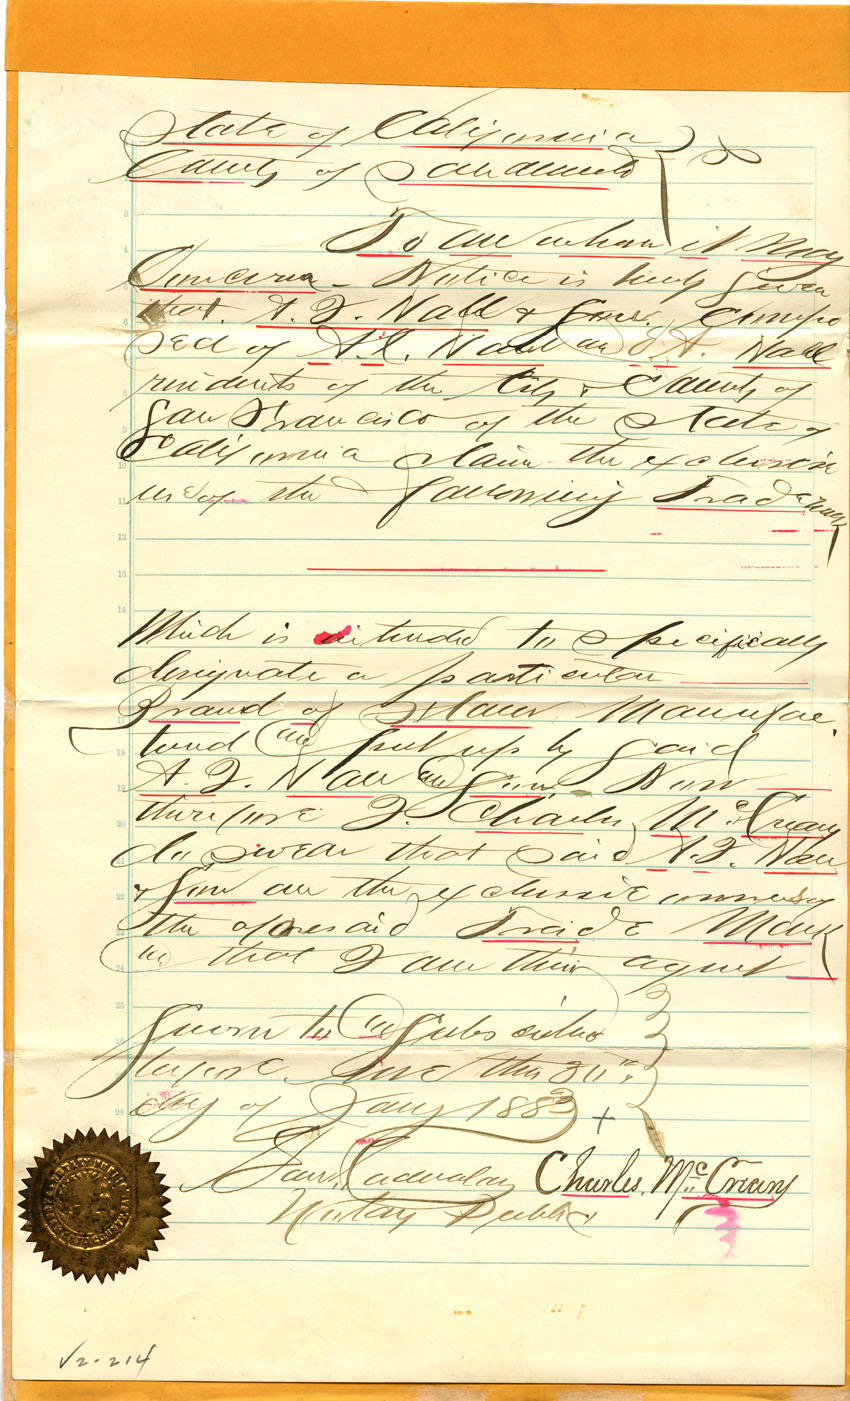 State of California
County of Sacramento } ss
To all whom it May
Concern - Notice is hereby given
that A. D. Nall & Sons. Compo
sed of A. D. Nall and A. Nall
residents of the City & County of
San Francisco of the State of
California claim the exclusive
use of the following Trade Mark
Which is intended to specifically
designate a particular
Brand of Flour Manufac
tured and put up by said
A. D. Nall and Son Now
therefore I. Charles McCreary
do swear that said A. D. Nall
& Son are the exclusive owners of
the aforesaid Trade Mark
and that I am their agent
Sworn to and Subscribed
before me this 30th
day of Jany 1883
+ Charles. McCreary
Notary Public
√2-214